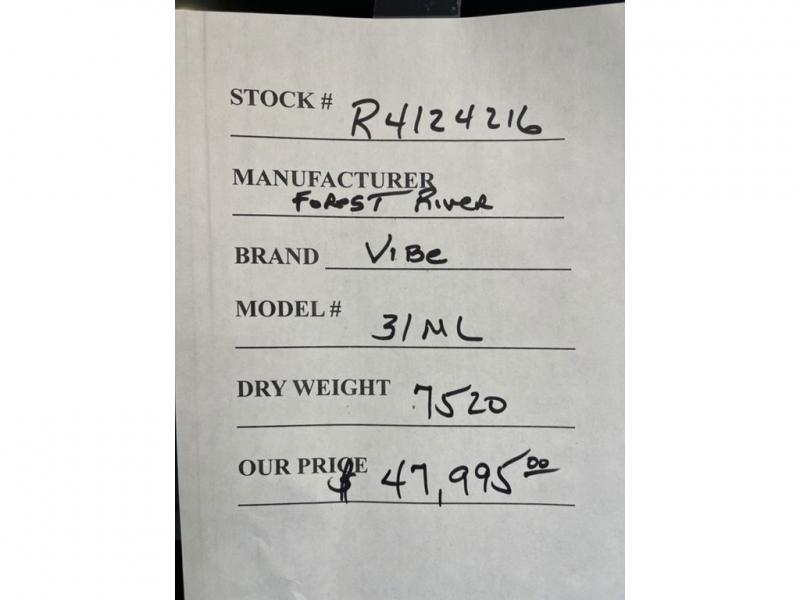 STOCK # R4124216
MANUFACTURER
FOREST RIVER
BRAND VIBE
MODEL # 31ML
DRY WEIGHT 7520
OUR PRICE $ 47,995.00